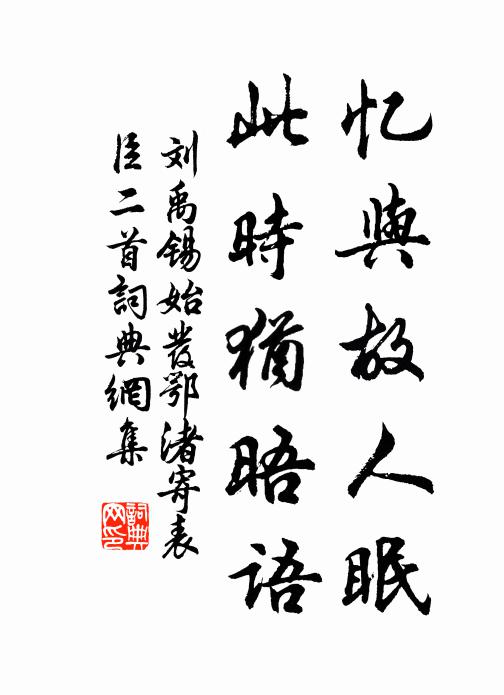 忆與故人眠
此時猶晤语
刘禹锡始發鄂渚寄表
臣二首詞典網集
詞典
网印